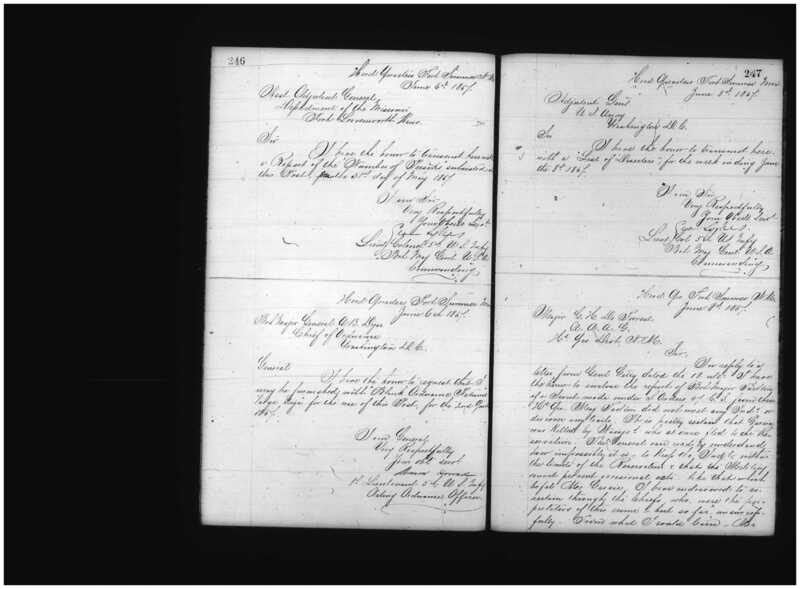 246
Head Quarters Fort Sumner N.M.
June 6th 1867.
Asst. Adjutant General,
Department of the Missouri
Fort Leavenworth Kans.
Sir
I have the honor to transmit herewith
a Report of the Number of Indians subsisted at
this Post, the 31st day of May 1867.
I am Sir
Very Respectfully
Your Obedt Servt
Lieut Colonel 5th U.S. Infy
Bvt Maj Genl U.S.A.
Commanding
Head Quarters Fort Sumner N.M.
June 6th 1867.
Bvt Major General A.B. Dyer
Chief of Ordnance
Washington D.C.
General
I have the honor to request that I
may be furnished with Blank Ordnance Returns
for the use of this Post, for the 2nd
1867.
I am General,
Very Respectfully
Your Obt Servt
1st Lieutenant 5th U.S. Infy
Acting Ordnance Officer.
247
Head Quarters Fort Sumner N.M.
June 8th 1867.
Adjutant Genl
U.S. Army
Washington D.C.
Sir
I have the honor to transmit here
with a "List of Deserters" for the week ending June
the 8th 1867.
I am Sir,
Very Respectfully
Your Obedt Servt
Lieut Col 5th U.S. Infy
Bvt Maj Genl U.S.A.
Commanding
Head Qrs Fort Sumner N.M.
June 8th 1867.
Major C. H. De Forrest
A. A. A. G.
Hd Qrs Dist. N.M.
Sir,
In reply to a
letter from Genl Getty dated the 12 ulto. I have
the honor to enclose the report of Bvt Major
of a Scout made under
did not meet any Inds. or
discover any trails. It is pretty certain that
was killed by Navajo's who at once fled to the Re
servation. The General will readily understand
how impossible it is to keep the Inds. within
the limits of the Reservation & that
must permit occasional acts like that which
befel Mr. I have endeavored to as-
certain through the Chiefs, who were the per-
petrators of this crime & but so far unsuccess-
fully. I send what I could learn.